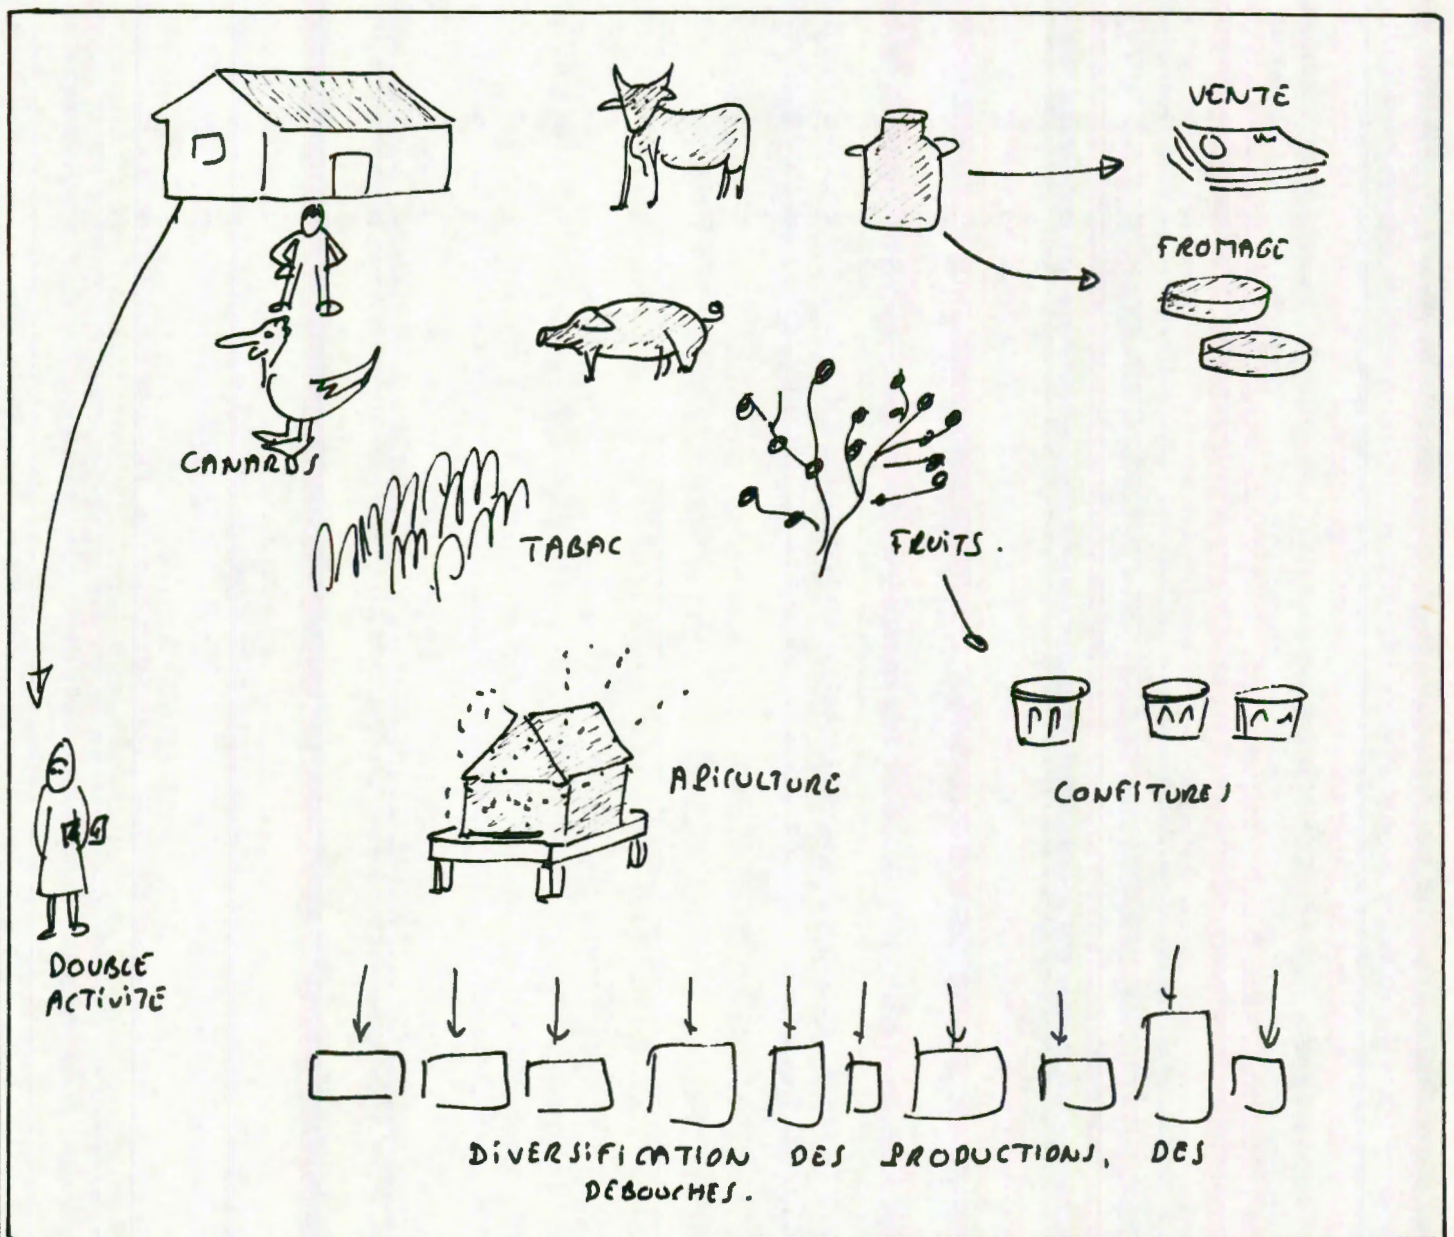 VENTE
FROMAGE
CANARDS
TABAC
FRUITS.
APICULTURE
CONFITURES
DOUBLE
ACTIVITE
DIVERSIFICATION DES PRODUCTIONS, DES
DEBOUCHES.